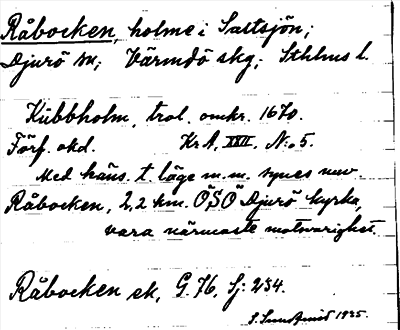 Råbocken, holme i Saltsjön;
Djurö sn; Värmdö skg; Sthlms l.
Kubbholm, trol. omkr. 1670.
Förf. okd. KrA, XXII, N:o 5.
Med häns. t. läge m.m. synes nuv.
Råbocken, 2,2 km. ÖSÖ Djurö kyrka,
vara närmaste motsvarighet.
Råbocken ek, G. 76, Sj: 234.
1925.